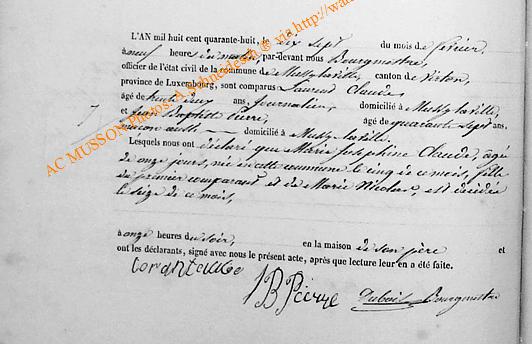 L'AN mil huit cent quarante-huit, le dix sept du mois de février
à neuf heures du matin, par-devant nous Bourgmestre,
officier de l'état civil de la commune de Mussy-la-ville, canton de Virton,
province de Luxembourg, sont comparus Laurent Claude,
âgé de ans, journalier, domicilié à Mussy-la-ville,
et Jean Baptiste Pierre, âgé de quarante sept ans,
maçon aussi domicilié à Mussy-la-ville.
Lesquels nous ont déclaré que Marie Josephine Claude, âgée
de onze jours, née en cette commune le cinq de ce mois, fille
du premier comparant et de Marie Nicolas, est décédée
le seize de ce mois,
à onze heures du soir, en la maison de son père et
ont les déclarants, signé avec nous le présent acte, après que lecture leur en a été faite.
JBPierre Dubois Bourgmestre
AC MUSSON Photos: A Schnedesch ® via http://wa